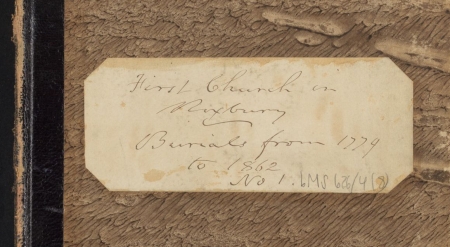 First Church in
Roxbury
Burials from 1779
to 1862
No 1. bMS 626/4 (8)